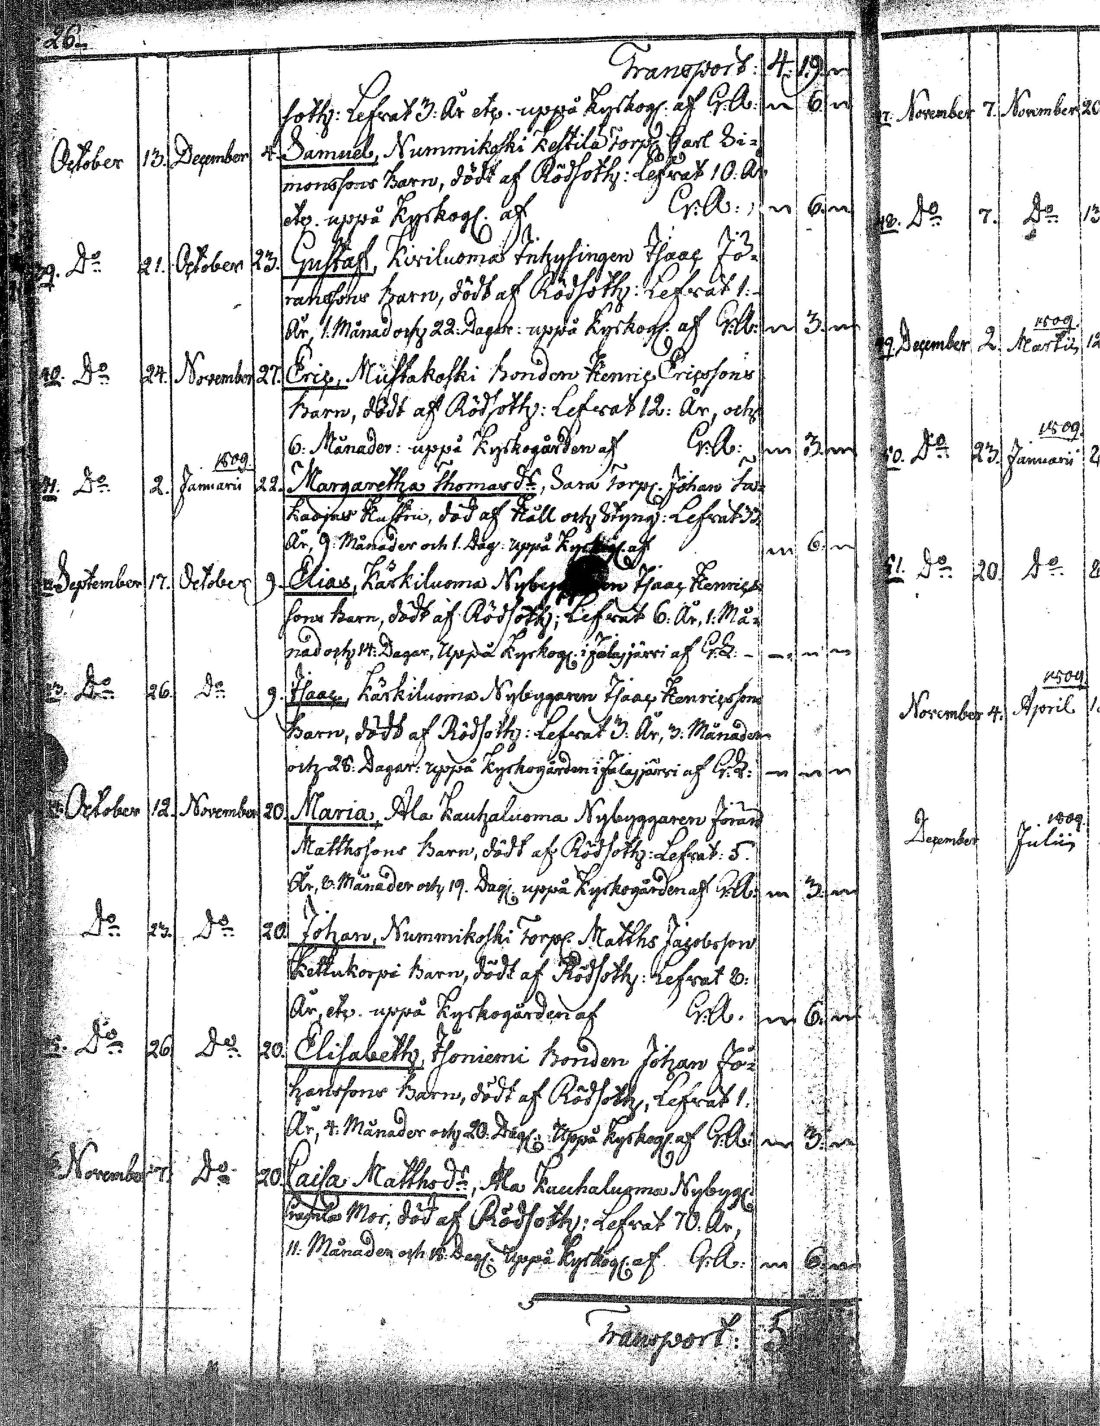 26.
Transport: 4. 19. "
soth: Lefvat 3. År etc. uppå Kyrkog. af Cr: A: " 6. "
October 13. December 4. Samuel, Nummikoski Kestilä Torp. Carl Si-
monssons Barn, dödt af Rödsoth: Lefvat 10. År
etc. uppå Kyrkog. af Cr: A: " 6. "
39. Do 21. October 23. Gustaf, Kiviluoma Inhysingen Isaac Jö-
ranssons Barn, dödt af Rödsoth: Lefvat 1.
År, 1. Månad och 22. Dagar: uppå Kyrkog. af Cr: A: " 3. "
40. Do 24. November 27. Eric, Mustakoski Bonden Henric Ericssons
Barn, dödt af Rödsoth: Lefvat 12: År, och
6: Månader: uppå Kyrkogården af Cr: A: " 3. "
1809.
41. Do 2. Januarii 22. Margaretha Thomasdr, Torp. Johan
Hustru, död af Håll och Styng: Lefvat 33
År, 9: Månader och 1. Dag: uppå Kyrkog. af " 6. "
September 17. October 9. Elias, Kärkiluoma Isaac Henrics-
sons Barn, dödt af Rödsoth; Lefvat 6: År, 1: Må-
nad och 14: Dagar, Uppå Kyrkog. i Jalasjärvi af " " "
43. Do 26. Do 9. Isaac, Kärkiluoma Nybyggaren Isaac Henricssons
Barn, dödt af Rödsoth: Lefvat 3: År, 3: Månader
och 28: Dagar: uppå Kyrkogården i Jalasjärvi af " " "
October 12. November 20. Maria, Ala Kauhaluoma Nybyggaren Jöran
Matthssons Barn, dödt af Rödsoth: Lefvat: 5.
År, 8: Månader och 19. Dag. uppå Kyrkogården af Cr: A: " 3. "
Do 23. Do 20. Johan, Nummikoski Torp. Matths Jacobsson
Kettukorpi Barn, dödt af Rödsoth: Lefvat 8:
År, etc. uppå Kyrkogården af Cr: A. " 6. "
Do 26. Do 20. Elisabeth, Isoniemi Bonden Johan Jo-
hanssons Barn, dödt af Rödsoth, Lefvat 1.
År, 4: Månader och 20: Dag.: Uppå Kyrkog. af Cr: A: " 3. "
November 7. Do 20. Caisa Matthsdr, Ala Kauhaluoma Nybygg.
Mor, död af Rödsoth: Lefvat 70. År,
11: Månader och 18: Dag. Uppå Kyrkog. af Cr: A: " 6. "
Transport: 5
November 7. November 20
48. Do 7. Do 13
1809.
49. December 2. Martii 12
1809.
50. Do 23. Januarii 2
51. Do 20. Do 8
1809.
November 4. April
1809.
December Julii